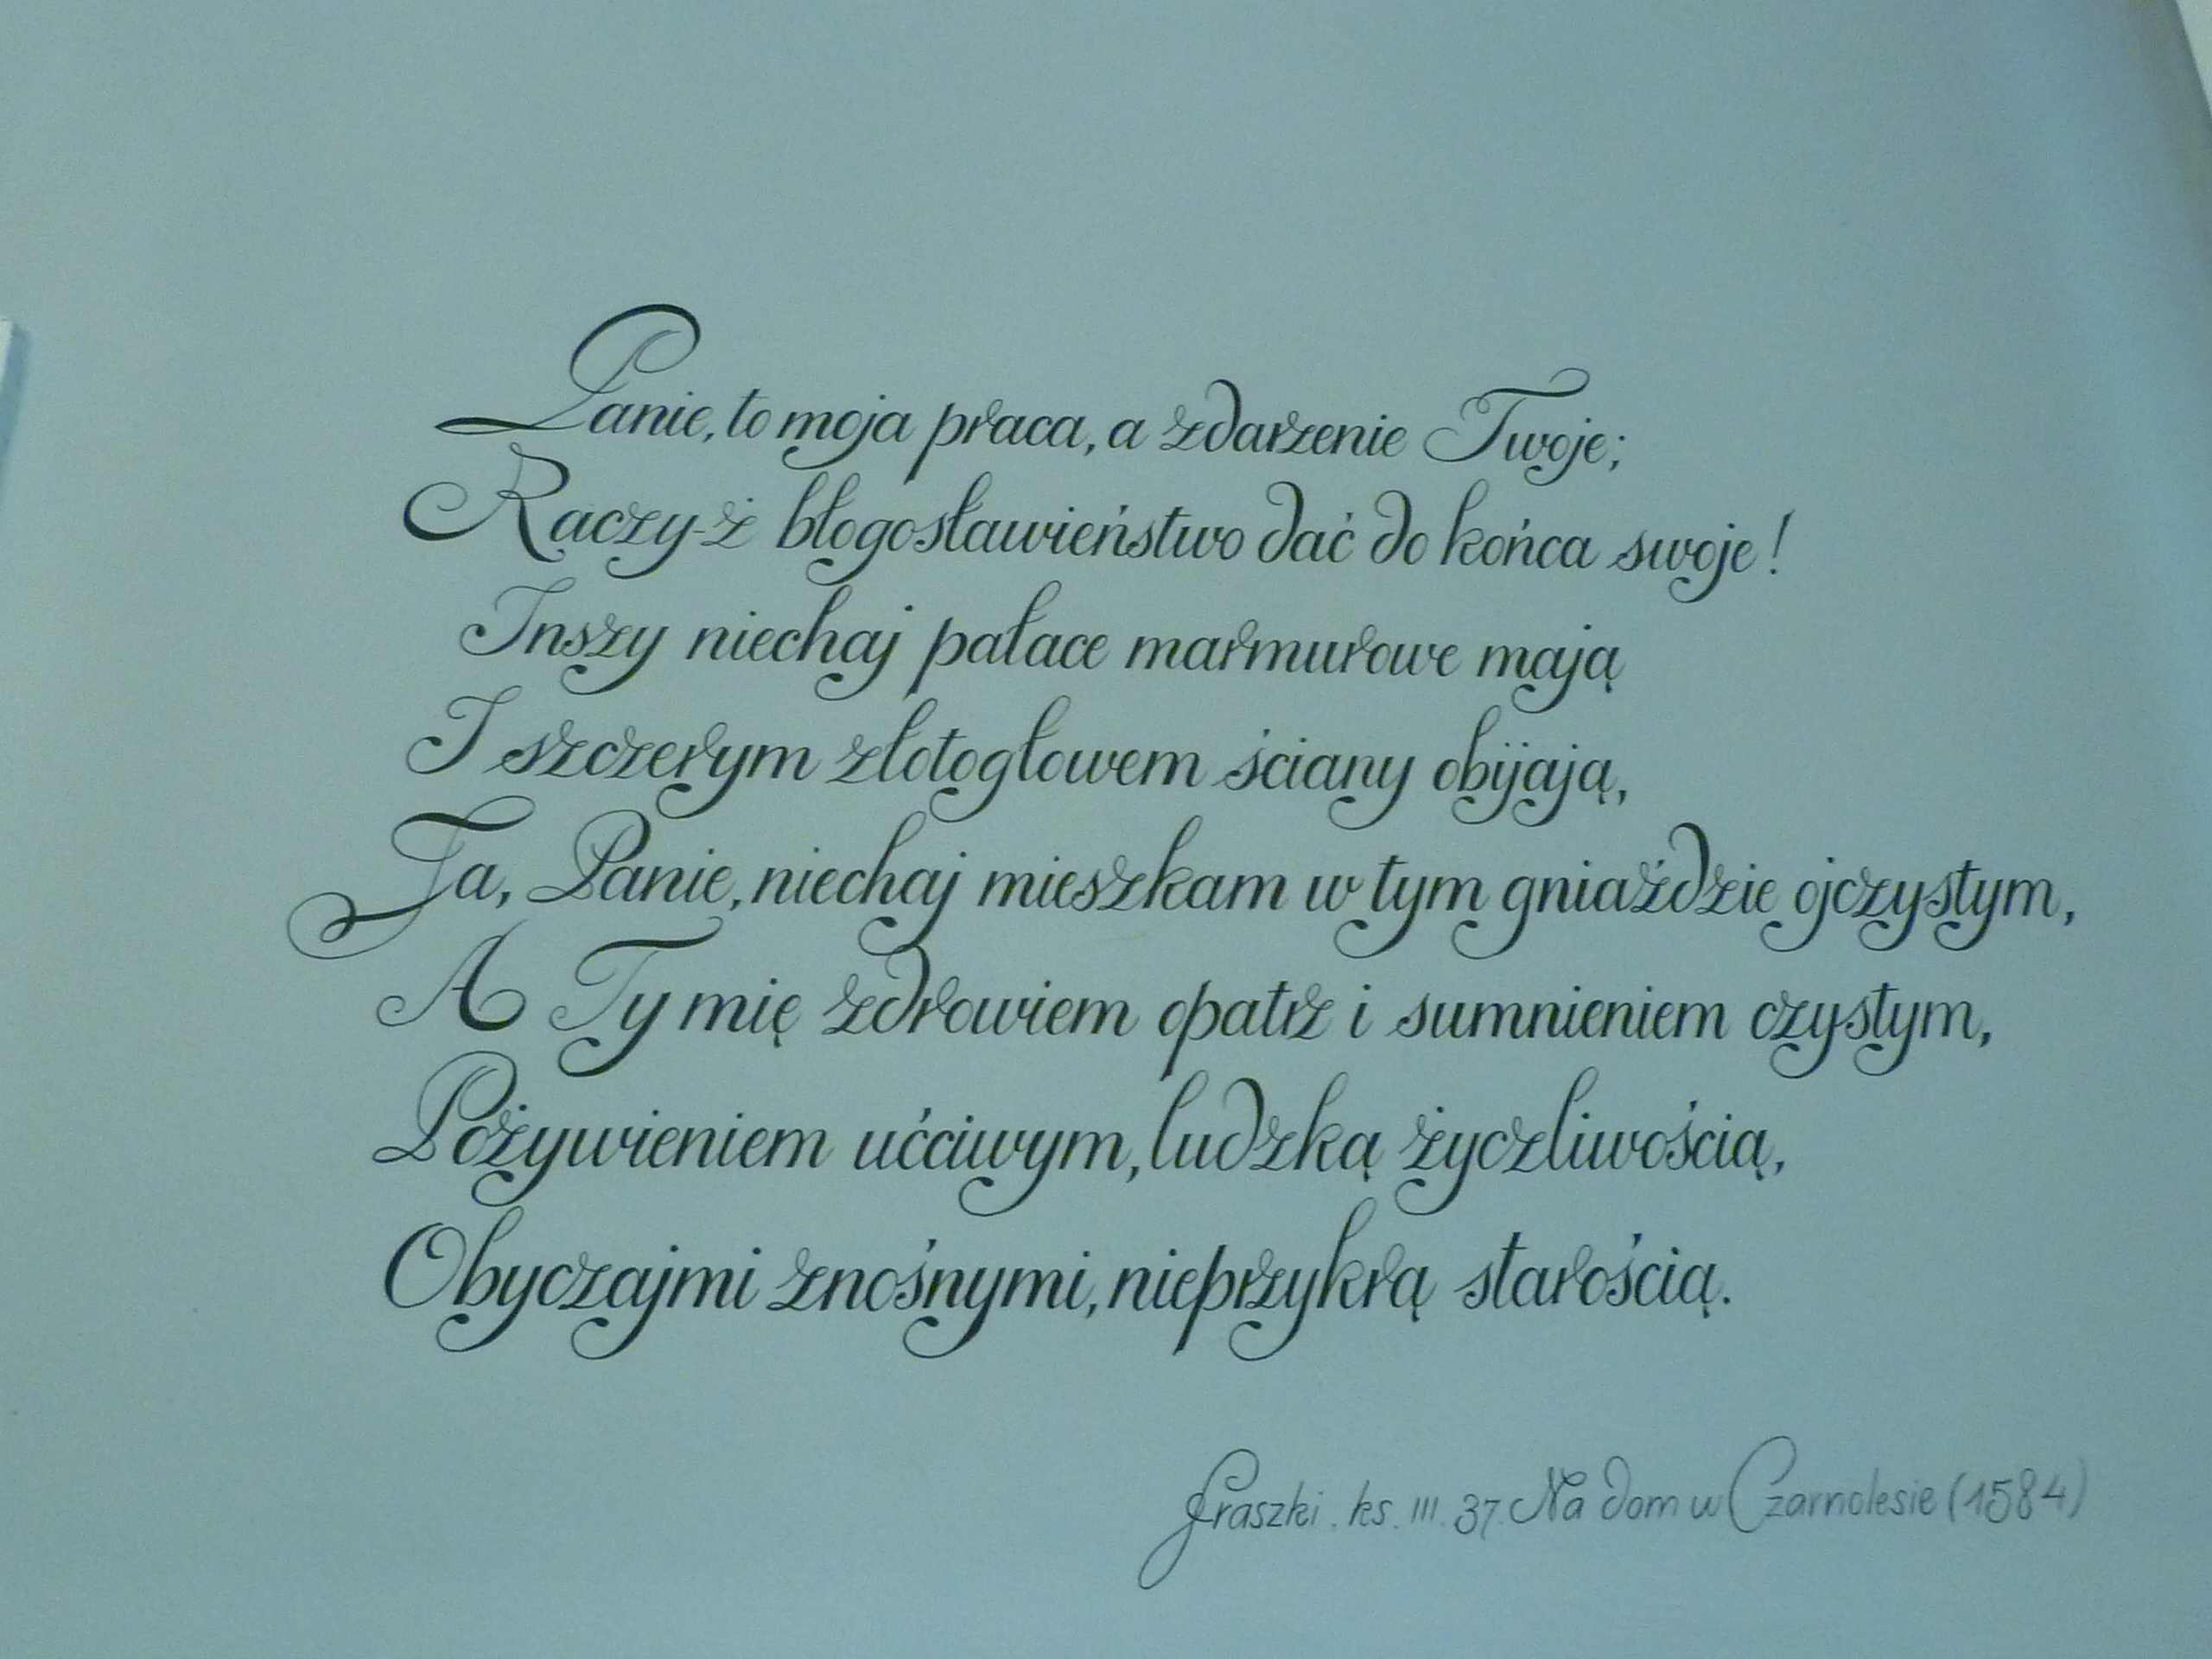 Panie, to moja praca, a zdarzenie Twoje;
Raczy-ż błogosławieństwo dać do końca swoje!
Inszy niechaj pałace marmurowe mają
I szczerym złotogłowem ściany obijają,
Ja, Panie, niechaj mieszkam w tym gniaździe ojczystym,
A Ty mię zdrowiem opatrz i sumnieniem czystym,
Pożywieniem ućciwym, ludzką życzliwością,
Obyczajmi znośnymi, nieprzykrą starością.
Fraszki. ks. III. 37. Na dom w Czarnolesie (1584)